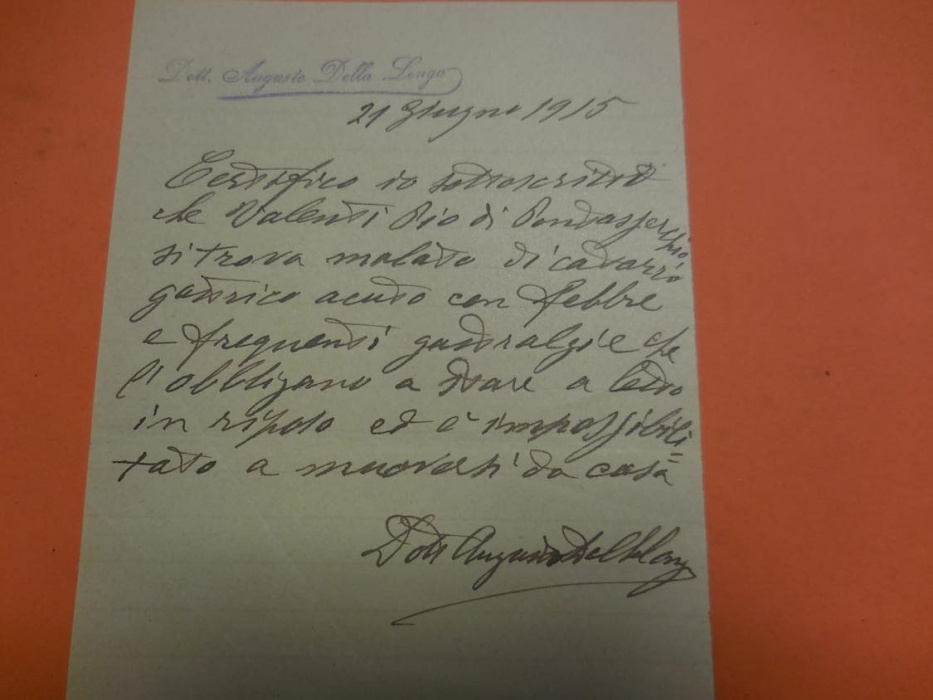 Dott. Augusto Della Longa
21 Giugno 1915
Certifico io sottoscritto
che Valenti Pio di Pontasserchio
si trova malato di catarro
gastrico acuto con febbre
e frequenti gastralgie che
l'obbligano a stare a letto
in riposo ed è impossibili=
tato a muoversi da casa
Dott Augusto Della Longa